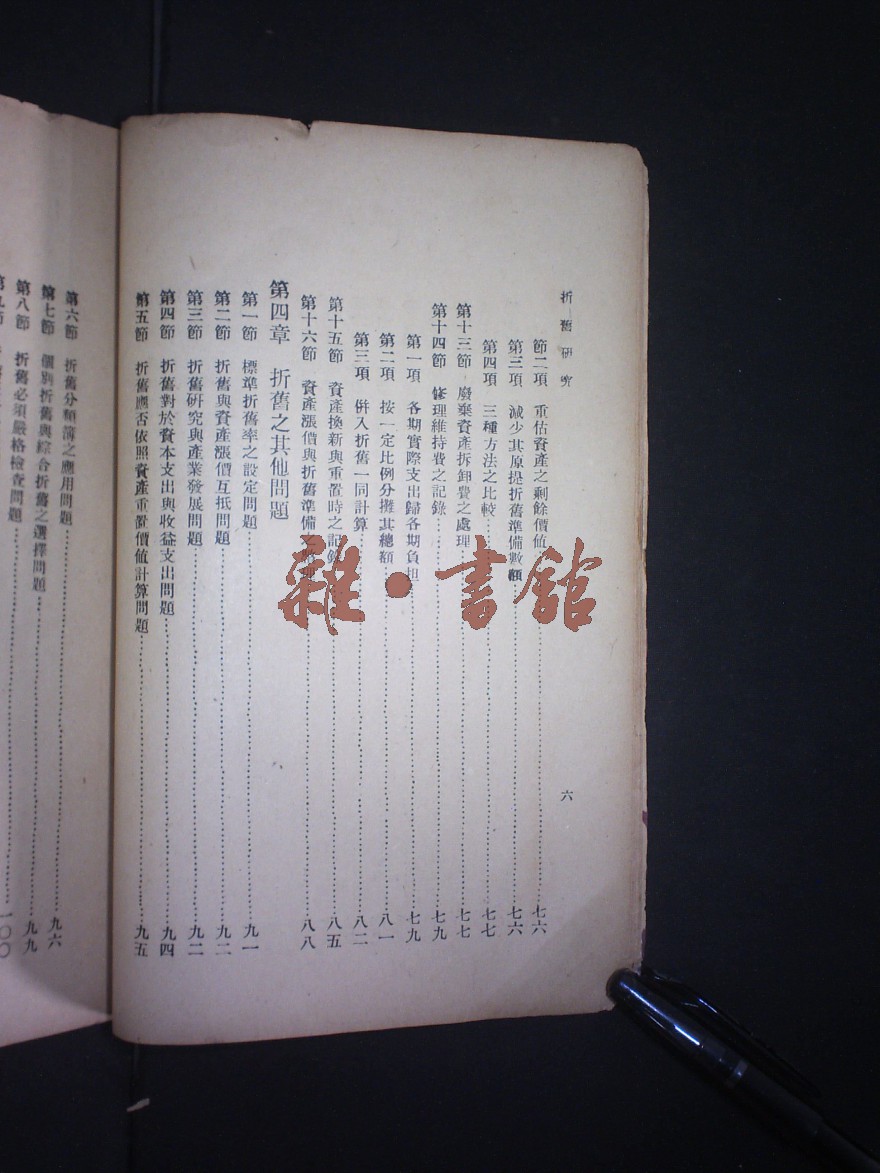 折舊研究
六
節二項 重估資產之剩餘價値……七六
第三項 減少其原提折舊準備數額……七六
第四項 三種方法之比較……七七
第十三節 廢棄資產拆卸費之處理……七七
第十四節 修理維持費之記錄……七九
第一項 各期實際支出歸各期負担……七九
第二項 按一定比例分攤其總額……八一
第三項 併入折舊一同計算……八二
第十五節 資產換新與重置時之記錄……八五
第十六節 資產漲價與折舊準備……八八
第四章 折舊之其他問題
第一節 標準折舊率之設定問題……九一
第二節 折舊與資產漲價互抵問題……九二
第三節 折舊研究與產業發展問題……九二
第四節 折舊對於資本支出與收益支出問題……九四
第五節 折舊應否依照資產重置價値計算問題……九五
第六節 折舊分類簿之應用問題……九六
第七節 個別折舊與綜合折舊之選擇問題……九九
第八節 折舊必須嚴格檢查問題……一〇〇
雜·書館